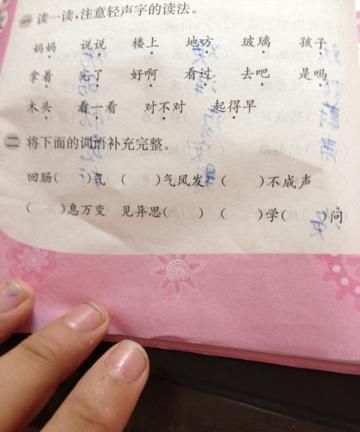 一 读一读,注意轻声字的读法。
妈妈 说说 楼上 地方 玻璃 孩子
拿着 完了 好啊 看过 去吧 是吗
木头 看一看 对不对 起得早
二 将下面的词语补充完整。
回肠( )气 ( )气风发 ( )不成声
( )息万变 见异思( ) ( )学( )问